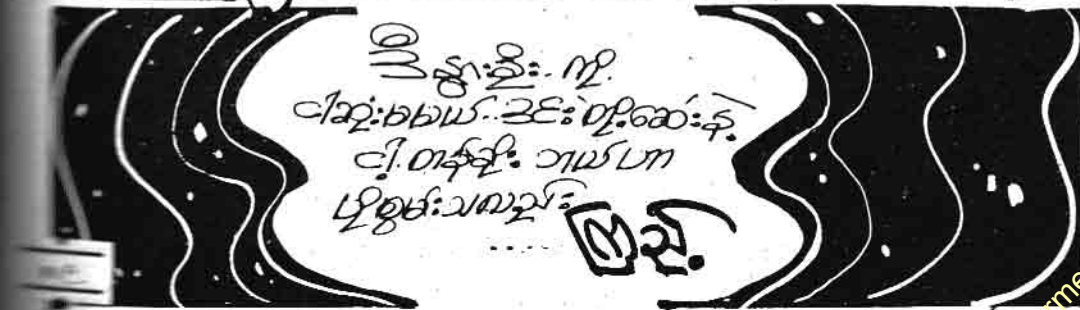 ဒီ နွားဦး.. ကို.
ငါဆုံးမမယ်.. ခင်းတို့စောင်းနဲ့
ငါ့ တန်ခိုး ဘယ်ဟာ
ပိုစွမ်းသလည်း
..... ကြည့်